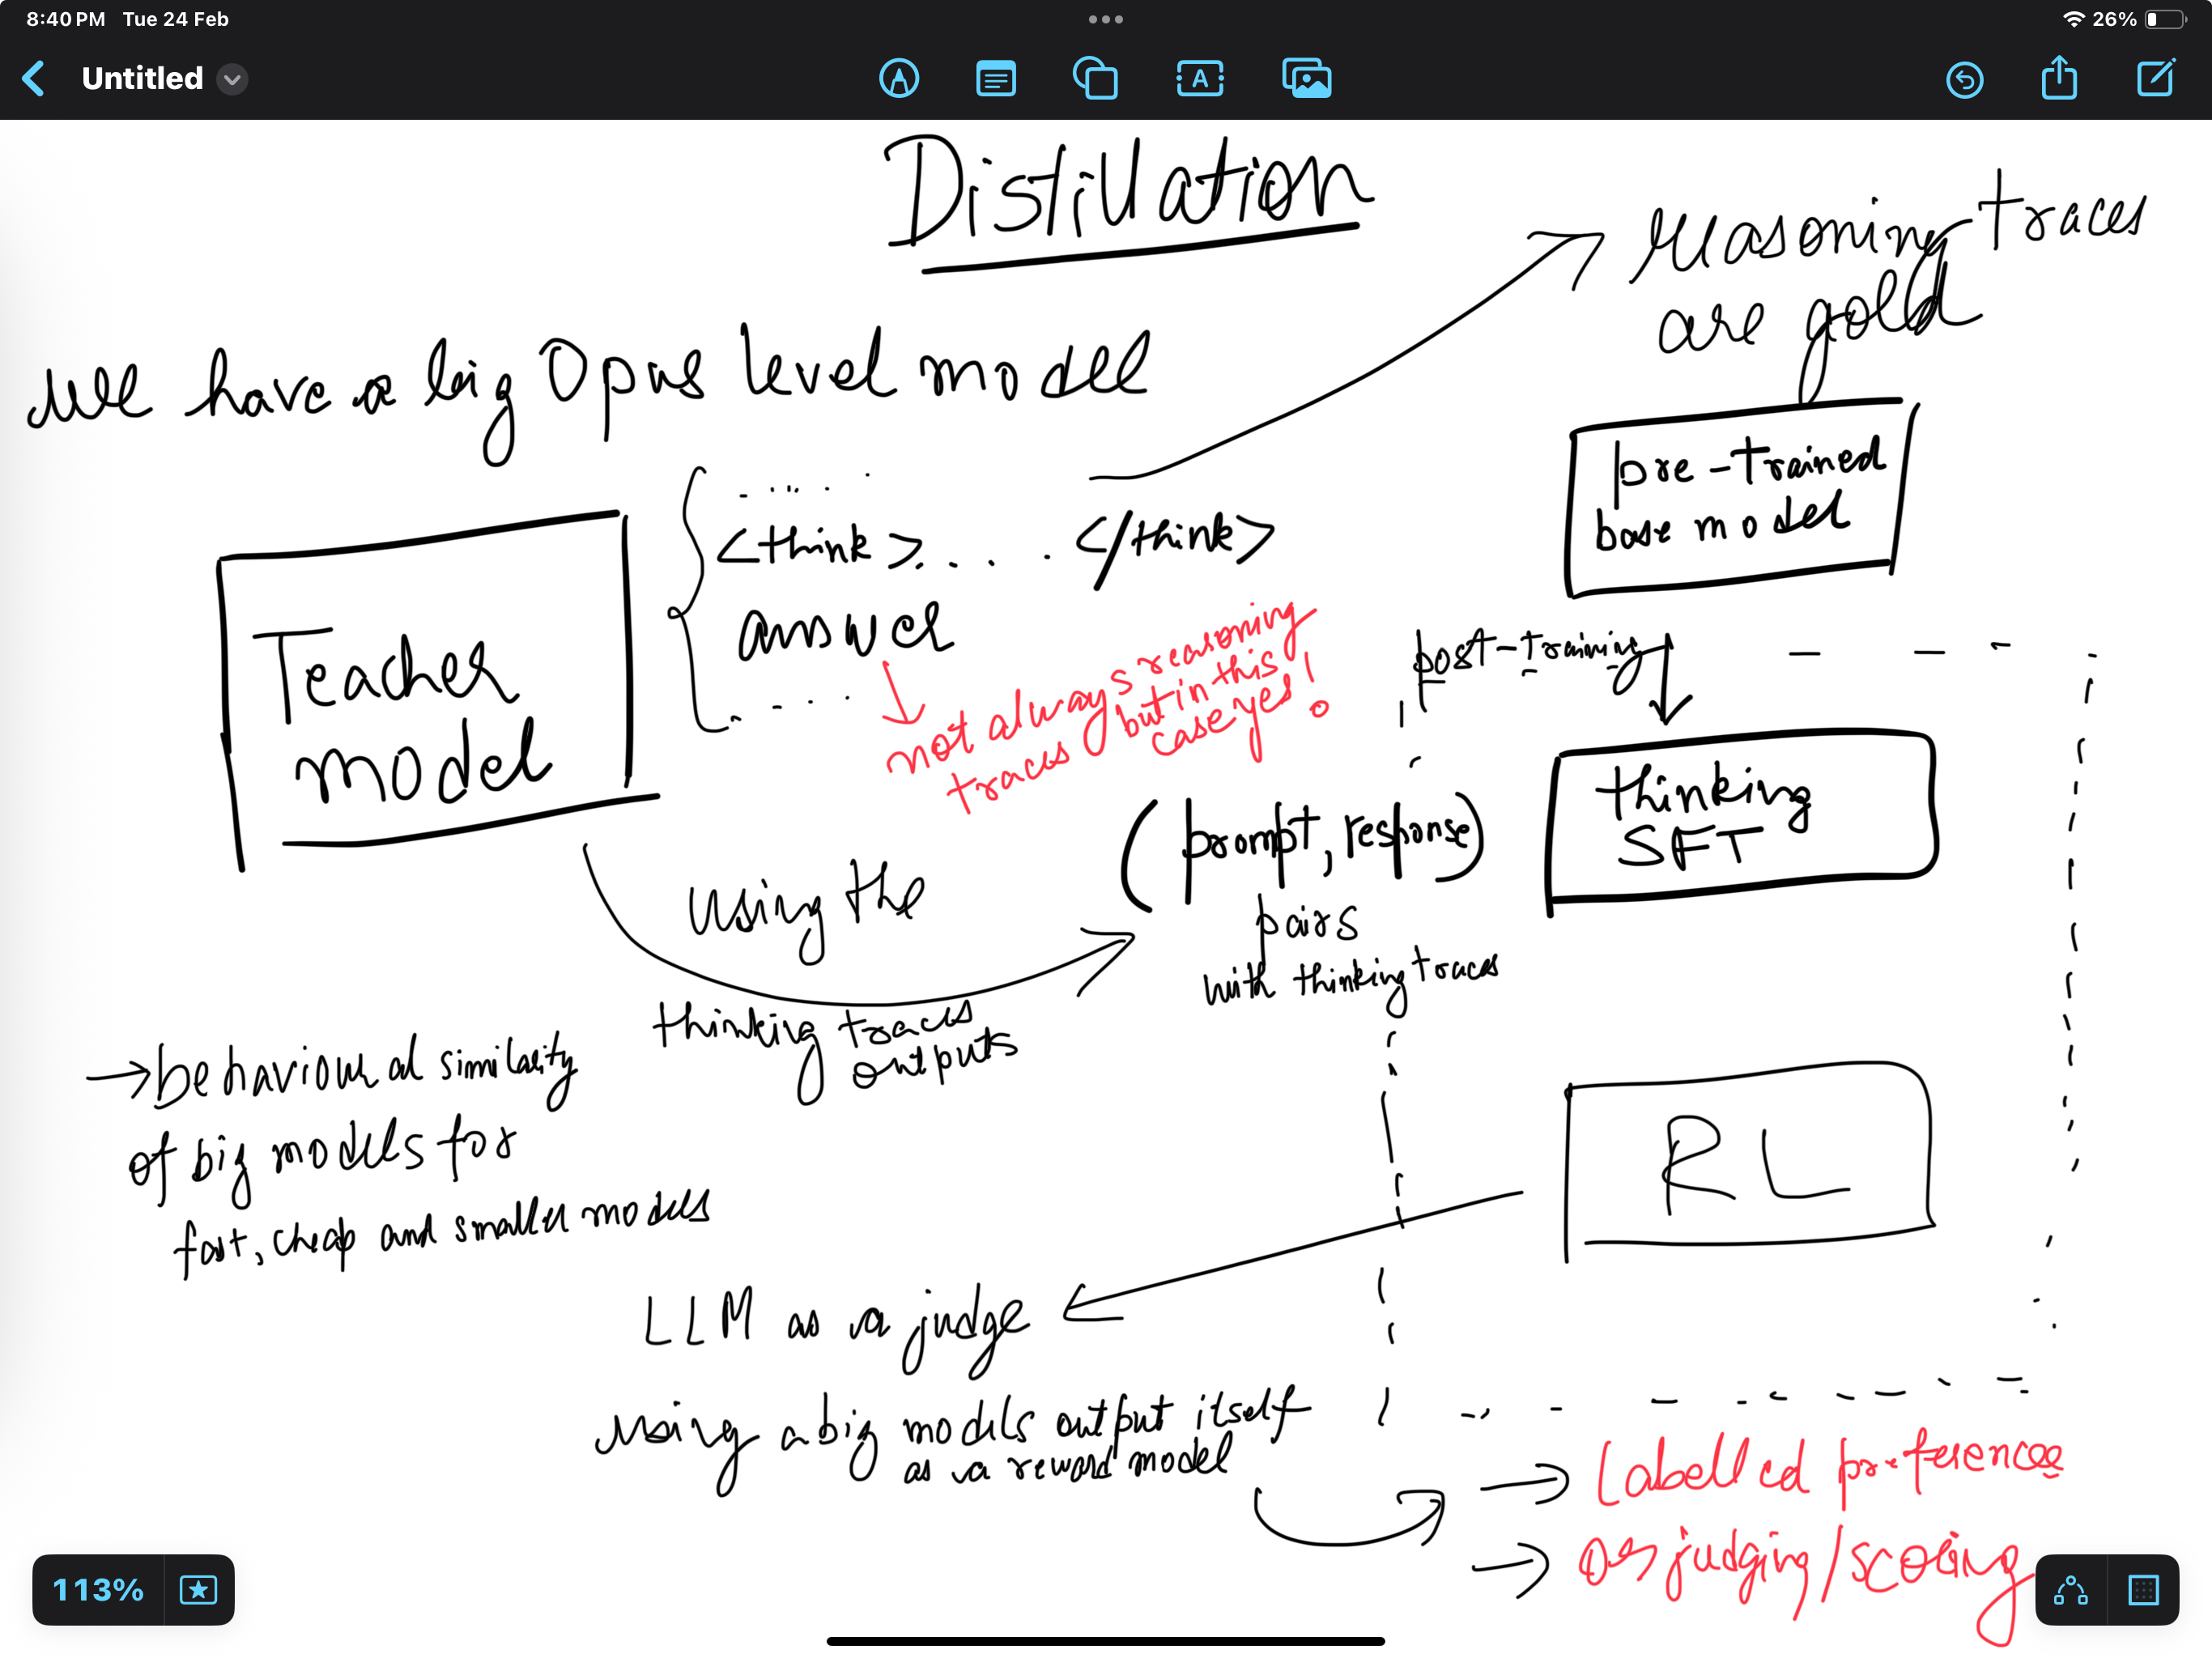 8:40 PM Tue 24 Feb
26%
Untitled
A
Distillation
reasoning traces
are gold
we have a big Opus level model
pre-trained
base model
<think>.... </think>
answer
Teacher
model
not always reasoning
traces but in this
case yes!
post-training
thinking
SFT
(prompt, response)
pairs
with thinking traces
using the
thinking traces
outputs
→ behavioural similarity
of big models for
fast, cheap and smaller models
RL
LLM as a judge
using a big models output itself
as a reward model
→ Labelled preferences
→ Or judging/scoring
113%